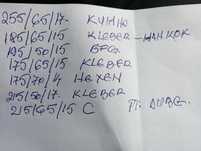 255/65/17- KUMHO
185/65/15 KLEBER - HANKOK
195/50/15 BFG
175/65/15 KLEBER
175/70/4 NEXEN
215/50/17- KLEBER
215/65/15 C